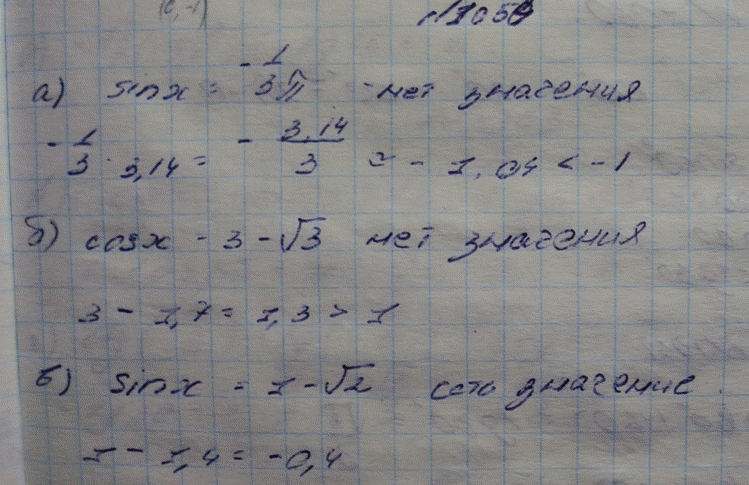 (0, -1)
№1050
а) sinx = -1/3 π - нет значения
-1/3 · 3,14 = - 3,14/3 ≈ - 1,04 < -1
б) cosx - 3 - √3 нет значения
3 - 1,7 = 1,3 > 1
б) sinx = 1 - √2 есть значение.
1 - 1,4 = -0,4